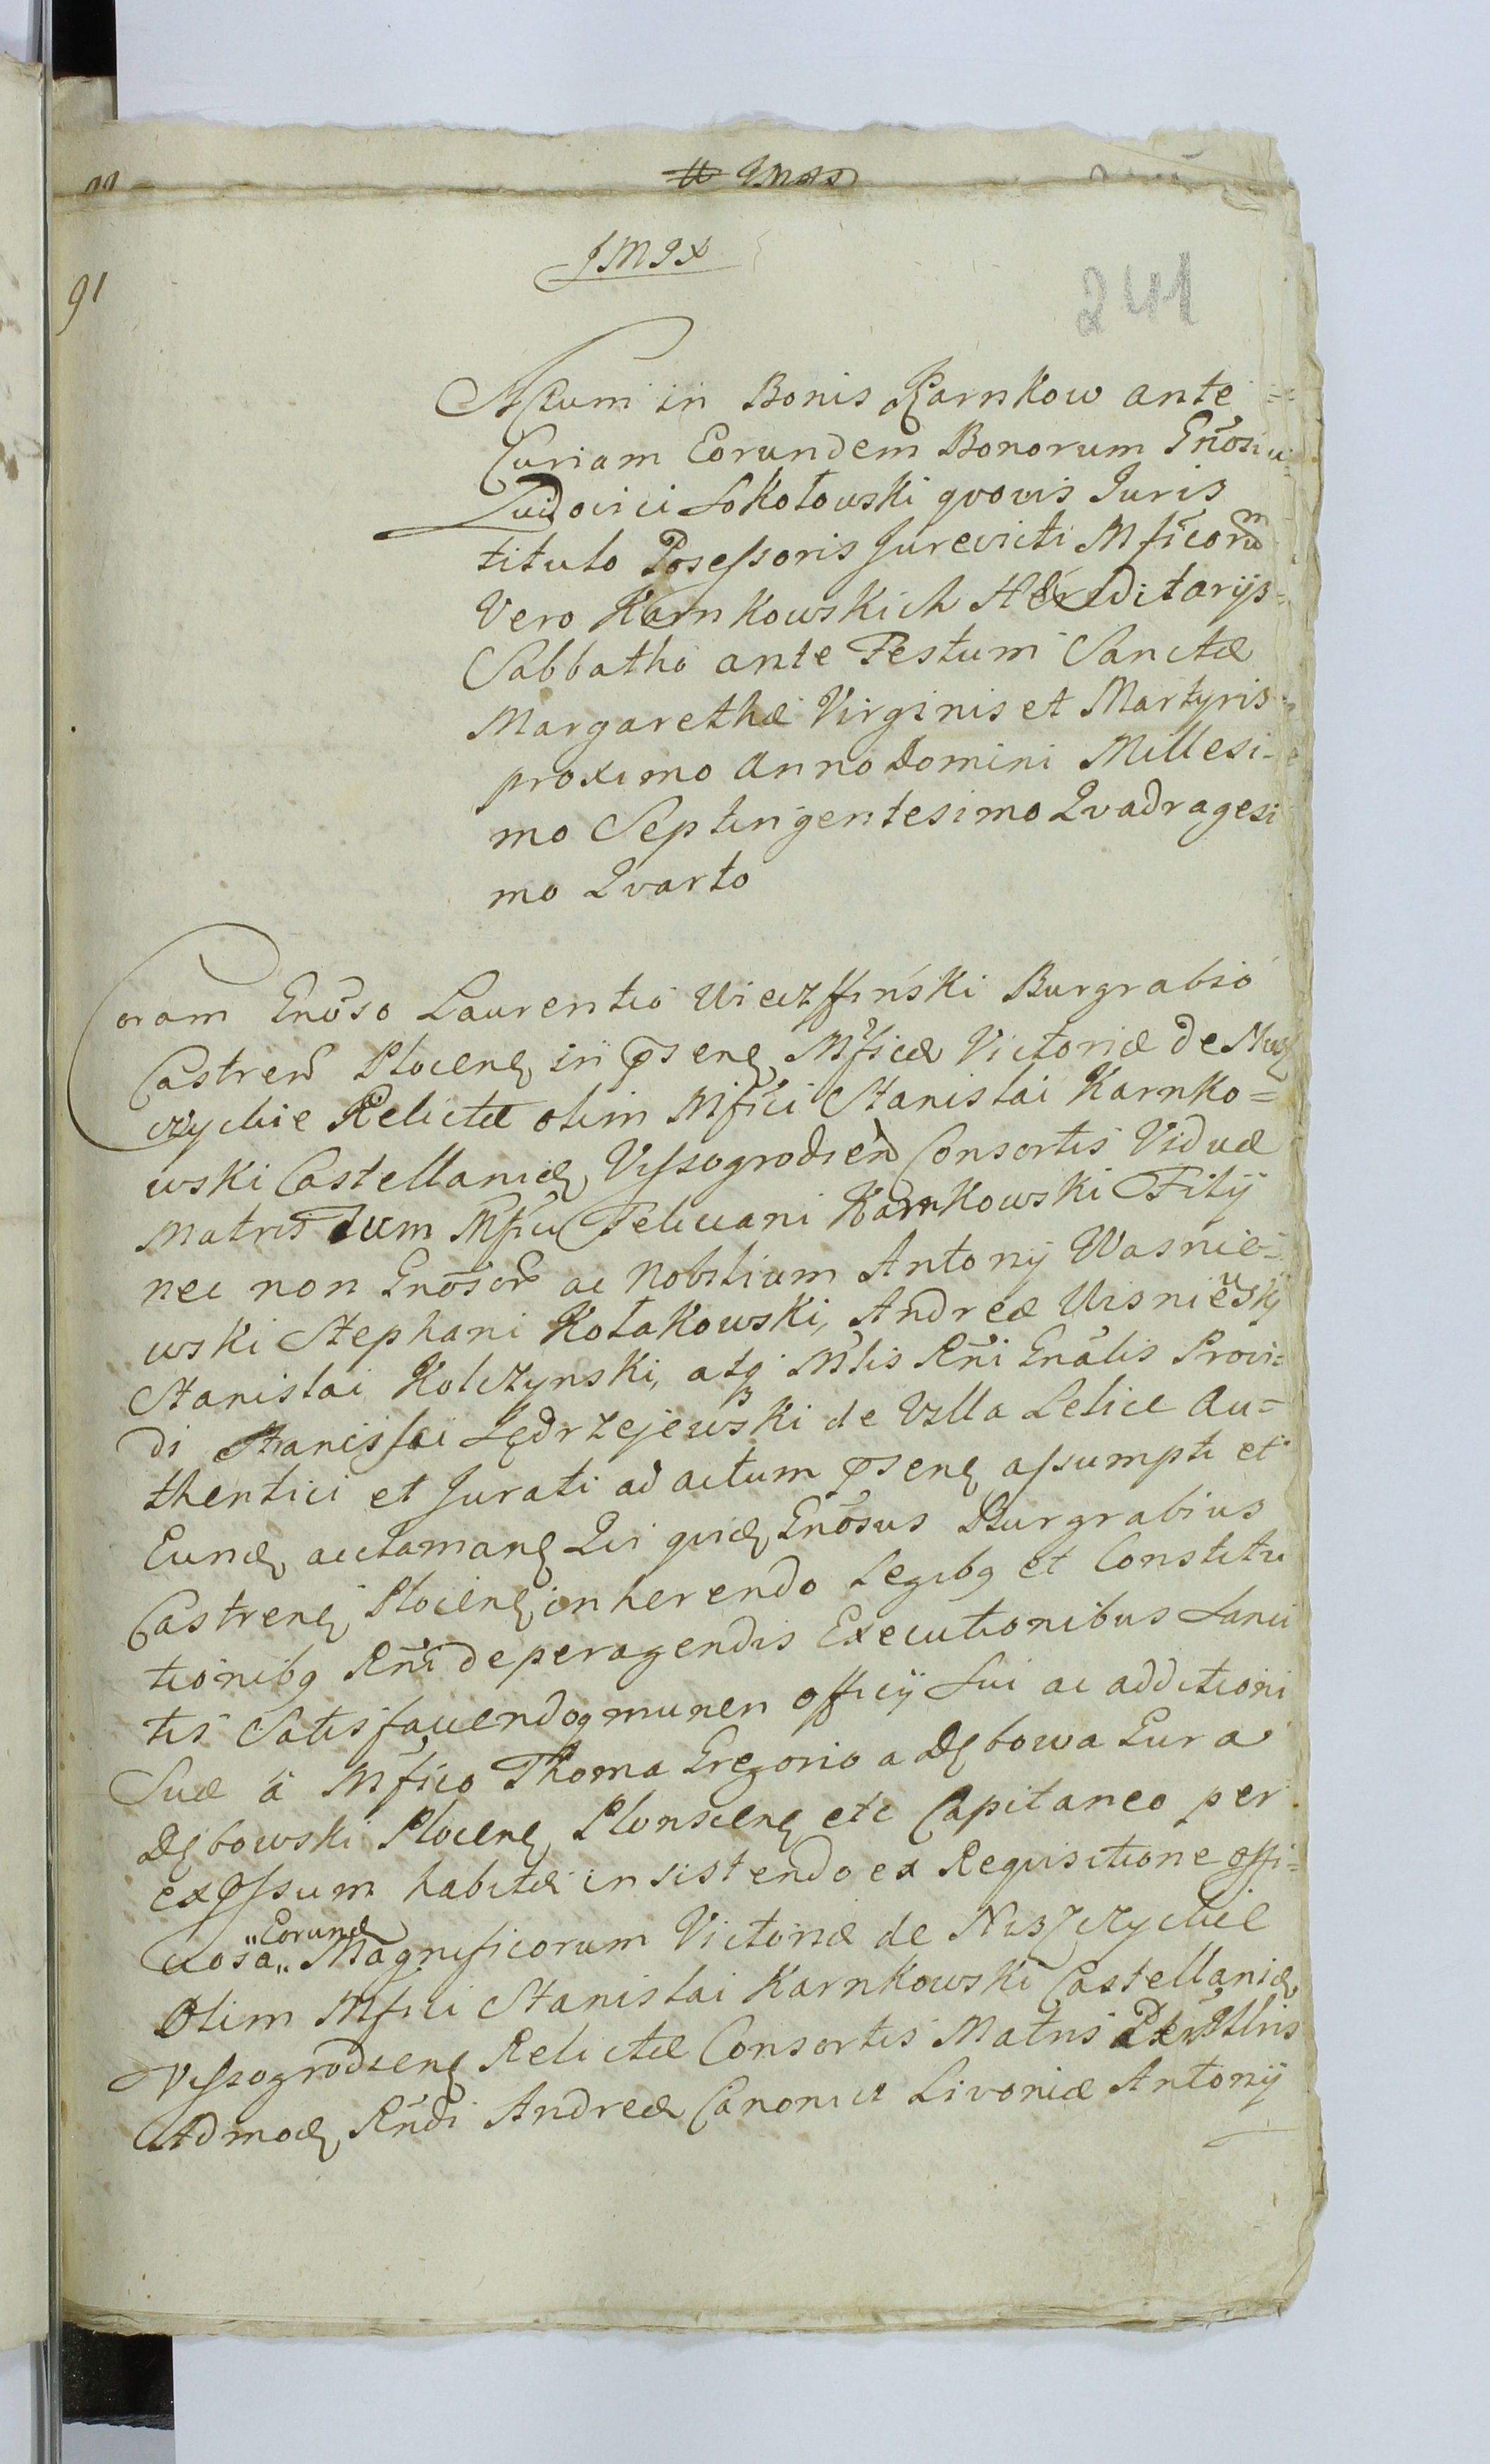 JMJX
91
241
Actum in Bonis Karnkow ante
Curiam Eorundem Bonorum Gnosi
Ludovici Sokołowski qvovis Juris
titulo Possessoris Jurevicti Mficorum
Vero Karnkowskich Hæreditarijs
Sabbatho ante Festum Sanctæ
Margarethæ Virginis et Martyris
proximo Anno Domini Millesi-
mo Septingentesimo Qvadragesi
mo Qvarto
Coram Gnoso Laurentio Burgrabio
Castren Plocen in Mficæ Victoriæ de
Relictæ olim Mfici Stanislai Karnko=
wski Castellanidæ Vissogrodien Consortis Viduæ
Matris Tum Mfici Feliciani Karnkowski Filij
nec non Gnosor ac Nobilium Antonij Wasnie-
wski Stephani Kołakowski, Andreæ Wisniewskij
Stanislai Kolczynski, atq Mlis Rni Gnalis Provi=
di Stanislai Jędrzejewski de Villa Lelice Au=
thentici et Jurati ad actum psen assumpti et
Eund actaman Qui quid Gnosus Burgrabius
Castren Plocen inherendo Legibq et Constitu
tionibq Rni de peragendis Executionibus Sanci
tis Satisfaciendoq muneri officij Sui ac additioni
Suæ a Mfico Thoma Gregorio a Dębowa Gura
Dębowski Plocen Plonscen etc Capitaneo per
expssum habitæ insistendo ex Requisitione offi=
ciosa "Eorund" Magnificorum Victoriæ de
Olim Mfici Stanislai Karnkowski Castellanidæ
Vissogrodien Relictæ Consortis Matris Per Illris
Admod Rndi Andreæ Canonici Livoniæ Antonij